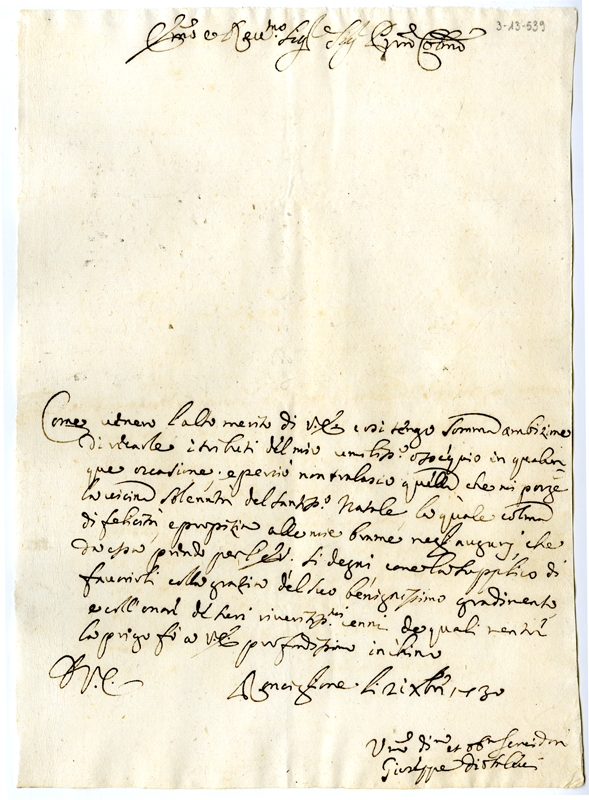 3-13-539
Emo e Reu.mo Sig.r Sig.r Pron Colmo
Come uenero l'alto merito di V.E. così tengo somma ambizione
di recarle i tributi del mio umiliss.o ossequio in qualun-
que occasione, e perciò non tralascio quella che mi porge
la uicina solennità del Santiss.o Natale, la quale colma
di felicità, e propizia alle mie brame negl'augurj, che
da essa prendo per V.E. Si degni come la supplico di
favorirli colla grazia del suo benignissimo gradimento,
e coll'onor de suoi riveritiss.mi cenni, de quali mentre
la prego fò a V.E. profondissimo inchino
D. V.E.
Ronciglione li 21 Xbre 1730
Umo Dimo et Obmo Seruidore
Giuseppe